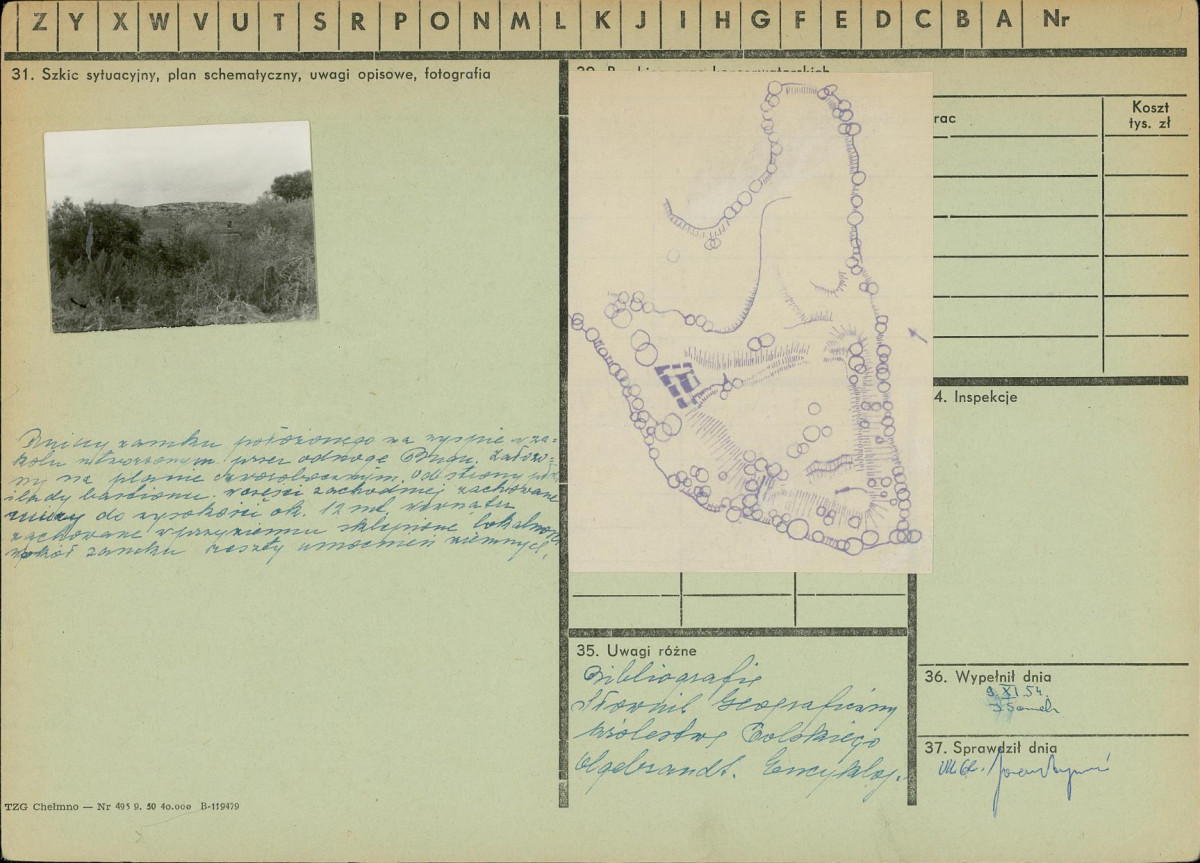 Z Y X W V U T S R P O N M L K J I H G F E D C B A Nr
31. Szkic sytuacyjny, plan schematyczny, uwagi opisowe, fotografia
rac
Koszt
tys. zł
zamku położonego na wyspie w za-
kolu utworzonym przez odnogę
ny na planie czworobocznym. Od strony
ślady bastionu. W części zachodniej zachowane
mury do wysokości ok. 12 mt, wewnątrz
zachowane w przyziemiu sklepione lokalności
wokół zamku reszty umocnień ziemnych.
4. Inspekcje
35. Uwagi różne
Bibliografia
Słownik Geograficzny
Królestwa Polskiego
Olgebrandt. Encyklop.
36. Wypełnił dnia
9. XI. 54.
37. Sprawdził dnia
TZG Chełmno — Nr 495 9. 50 40.000 B-119479